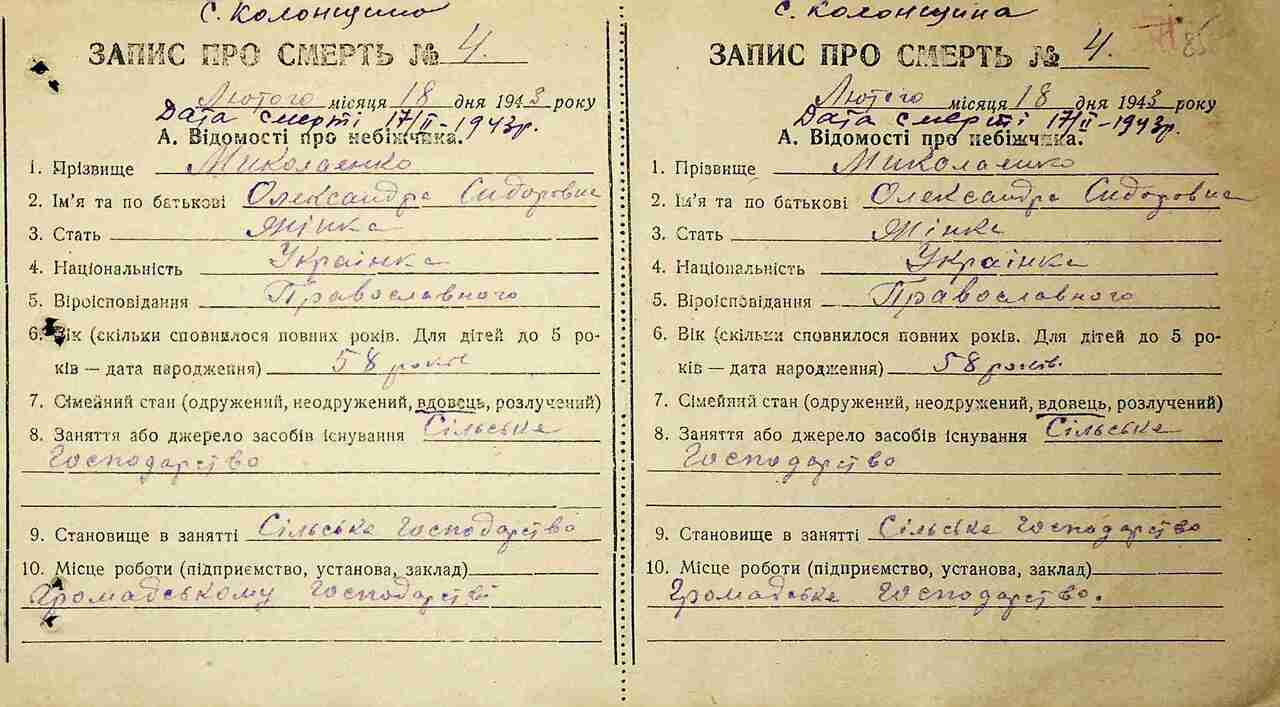 с. Колонщино
ЗАПИС ПРО СМЕРТЬ № 4.
Лютого місяця 18 дня 1943 року
Дата смерті 17/II-1943р.
А. Відомості про небіжчика.
1. Прізвище Миколаенко
2. Ім'я та по батькові Олександра Сидоровна
3. Стать Жінка
4. Національність Українка
5. Віроісповідання Православного
6. Вік (скільки сповнилося повних років. Для дітей до 5 ро-
ків — дата народження) 58 років
7. Сімейний стан (одружений, неодружений, вдовець, розлучений)
8. Заняття або джерело засобів існування Сільське
Господарство
9. Становище в занятті Сільське господарство
10. Місце роботи (підприємство, установа, заклад)
Громадському господарстві
с. Колонщина
ЗАПИС ПРО СМЕРТЬ № 4.
Лютого місяця 18 дня 1943 року
Дата смерті 17/II-1943р.
А. Відомості про небіжчика.
1. Прізвище Миколаенко
2. Ім'я та по батькові Олександра Сидоровна
3. Стать Жінка
4. Національність Українка
5. Віроісповідання Православного
6. Вік (скільки сповнилося повних років. Для дітей до 5 ро-
ків — дата народження) 58 років.
7. Сімейний стан (одружений, неодружений, вдовець, розлучений)
8. Заняття або джерело засобів існування Сільське
Господарство
9. Становище в занятті Сільське господарство
10. Місце роботи (підприємство, установа, заклад)
Громадське господарство.